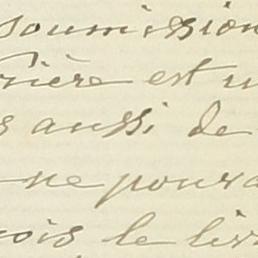 soumission
rière est u
s aussi de
ne pourra
ois le liv